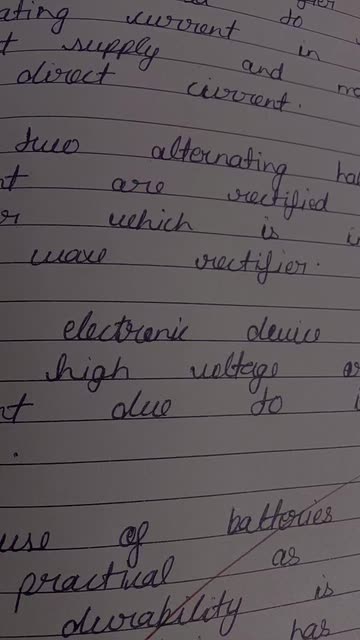 ating current to
t supply in
direct and
current.
two alternating hal
nt are rectified
er which is i
wave rectifier.
electronic device
high voltage
nt due to i
.
use of batteries
practical as
durability is
has